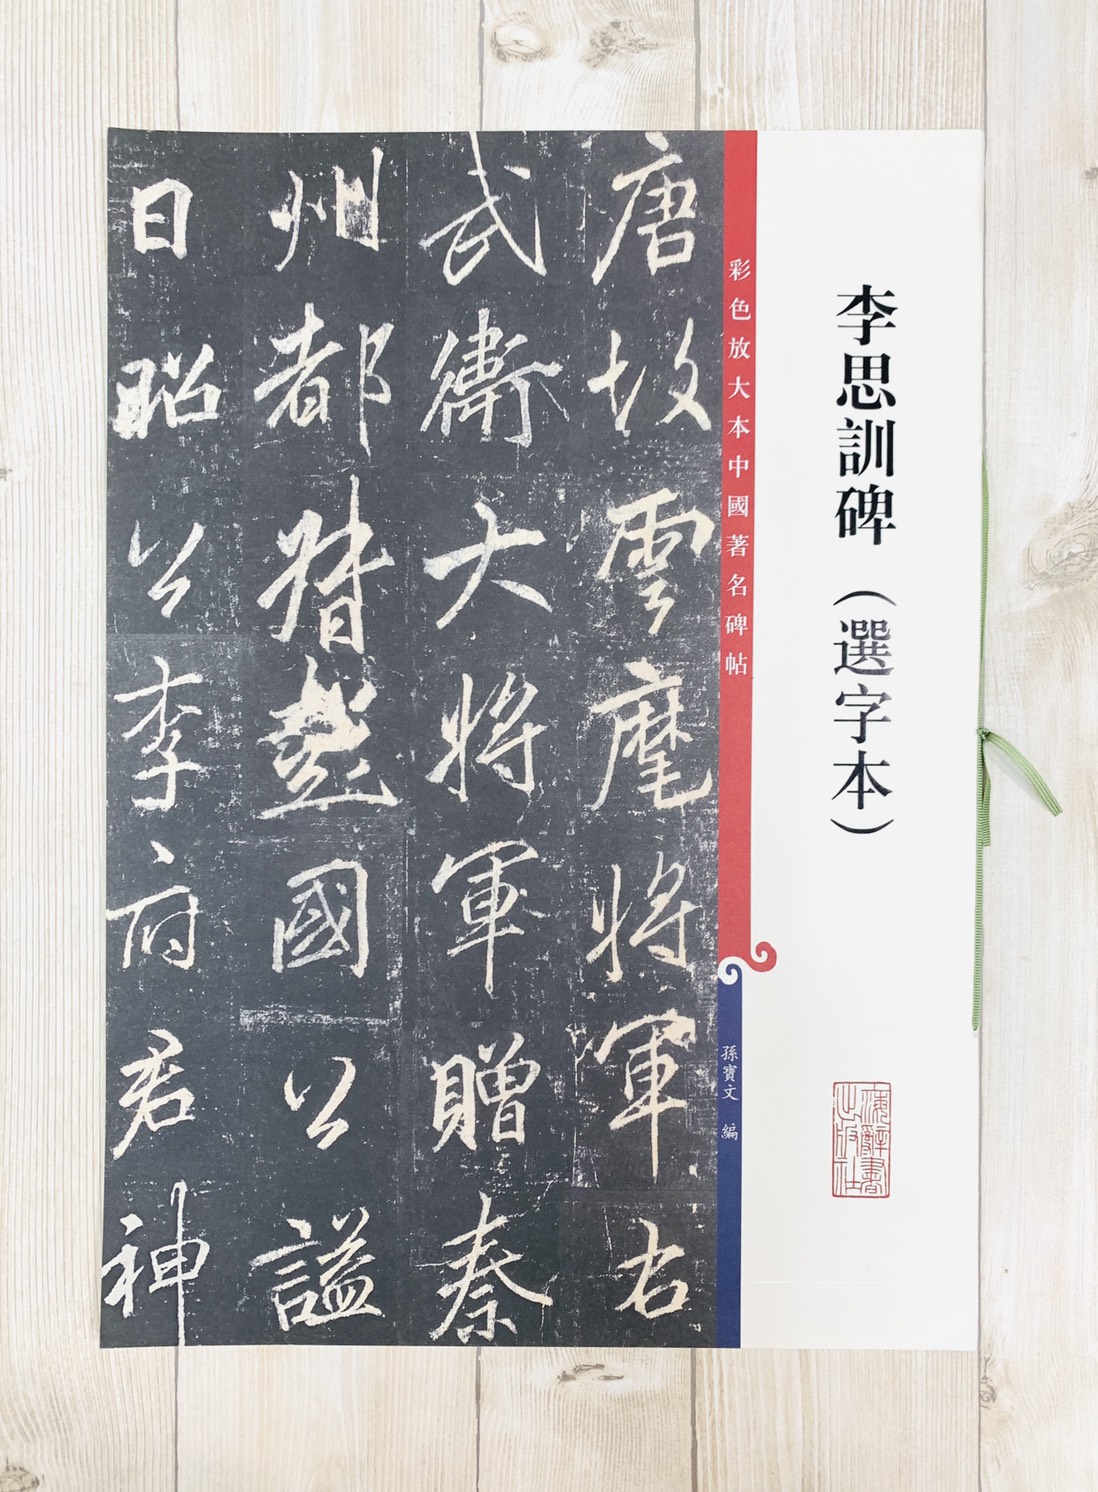 李思訓碑（選字本）
海辭書
出版社
彩色放大本中國著名碑帖
孫寶文 編
唐故雲麾將軍右
武衛大將軍贈秦
州都督彭國公謚
曰昭公李府君神